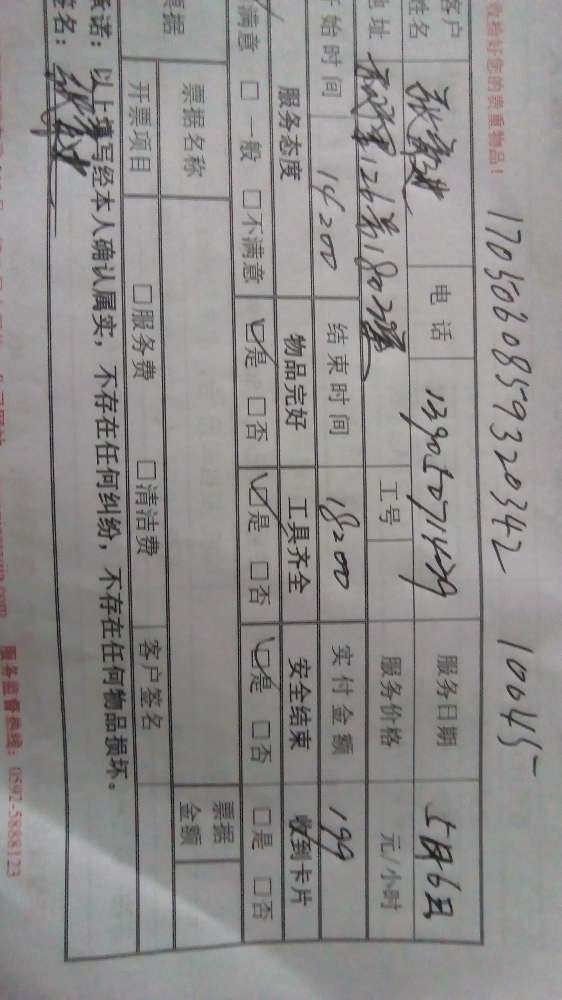 收拾好您的贵重物品！
1705060859320342 10045
客户姓名 电话 13905071479 服务日期 5月6日
地址 126弄180 工号 服务价格 元/小时
开始时间 14:00 结束时间 18:00 实付金额 199
服务态度 物品完好 工具齐全 安全结束 收到卡片
满意 □一般 □不满意 ☑是 □否 ☑是 □否 ☑是 □否 □是 □否
票据 票据名称 票据金额
开票项目 □服务费 □清洁费 客户签名
承诺：以上填写经本人确认属实，不存在任何纠纷，不存在任何物品损坏。
签名：
服务监督热线：0592-5888123